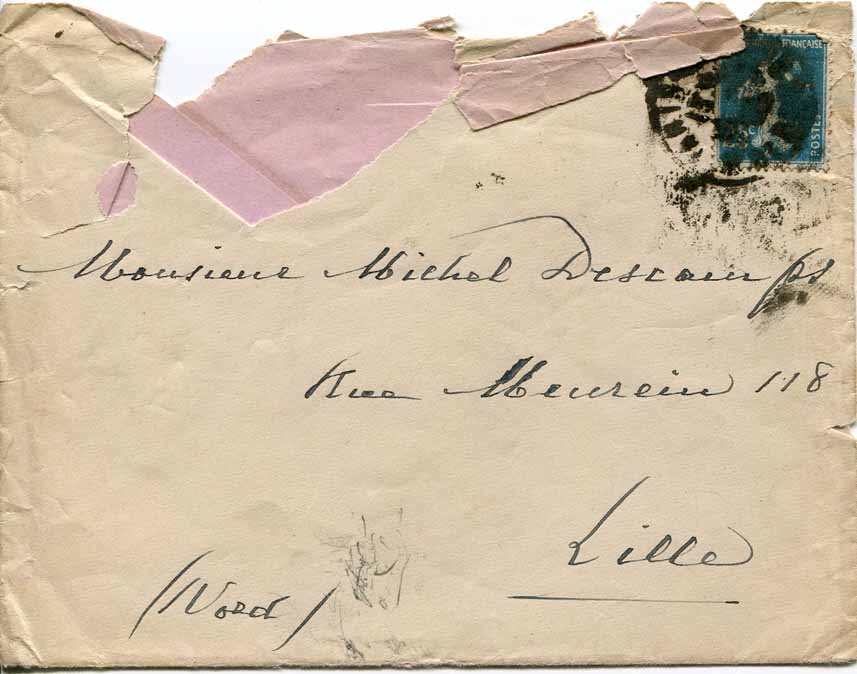 FRANÇAISE
POSTES
Monsieur Michel Descamps
Rue Meurein 118
Lille
(Nord)